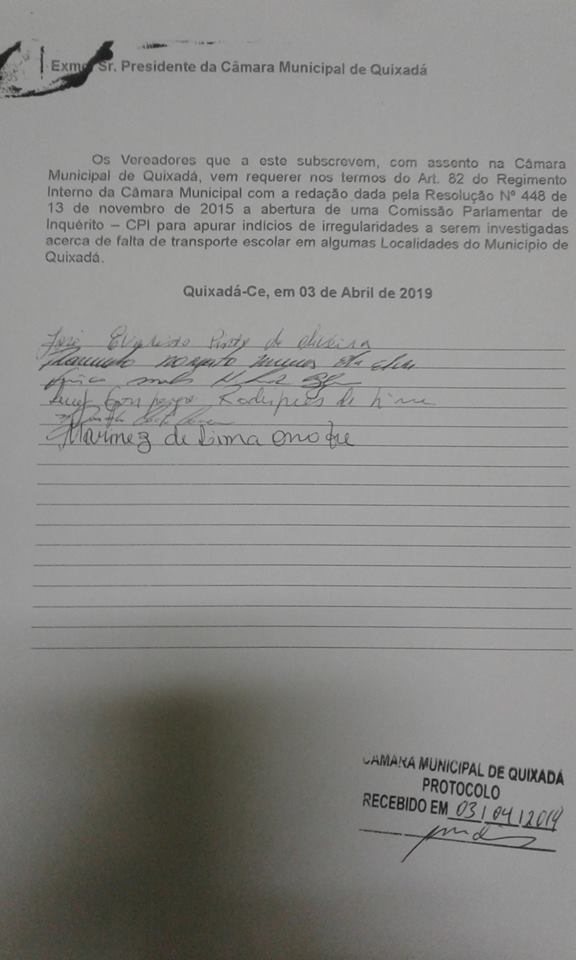 Exmo. Sr. Presidente da Câmara Municipal de Quixadá
Os Vereadores que a este subscrevem, com assento na Câmara
Municipal de Quixadá, vem requerer nos termos do Art. 82 do Regimento
Interno da Câmara Municipal com a redação dada pela Resolução Nº 448 de
13 de novembro de 2015 a abertura de uma Comissão Parlamentar de
Inquérito – CPI para apurar indícios de irregularidades a serem investigadas
acerca de falta de transporte escolar em algumas Localidades do Município de
Quixadá.
Quixadá-Ce, em 03 de Abril de 2019
José Evaristo de Oliveira
Raimundo
Rodrigues de Lima
Marinez de Lima
CÂMARA MUNICIPAL DE QUIXADÁ
PROTOCOLO
RECEBIDO EM 03/04/2019